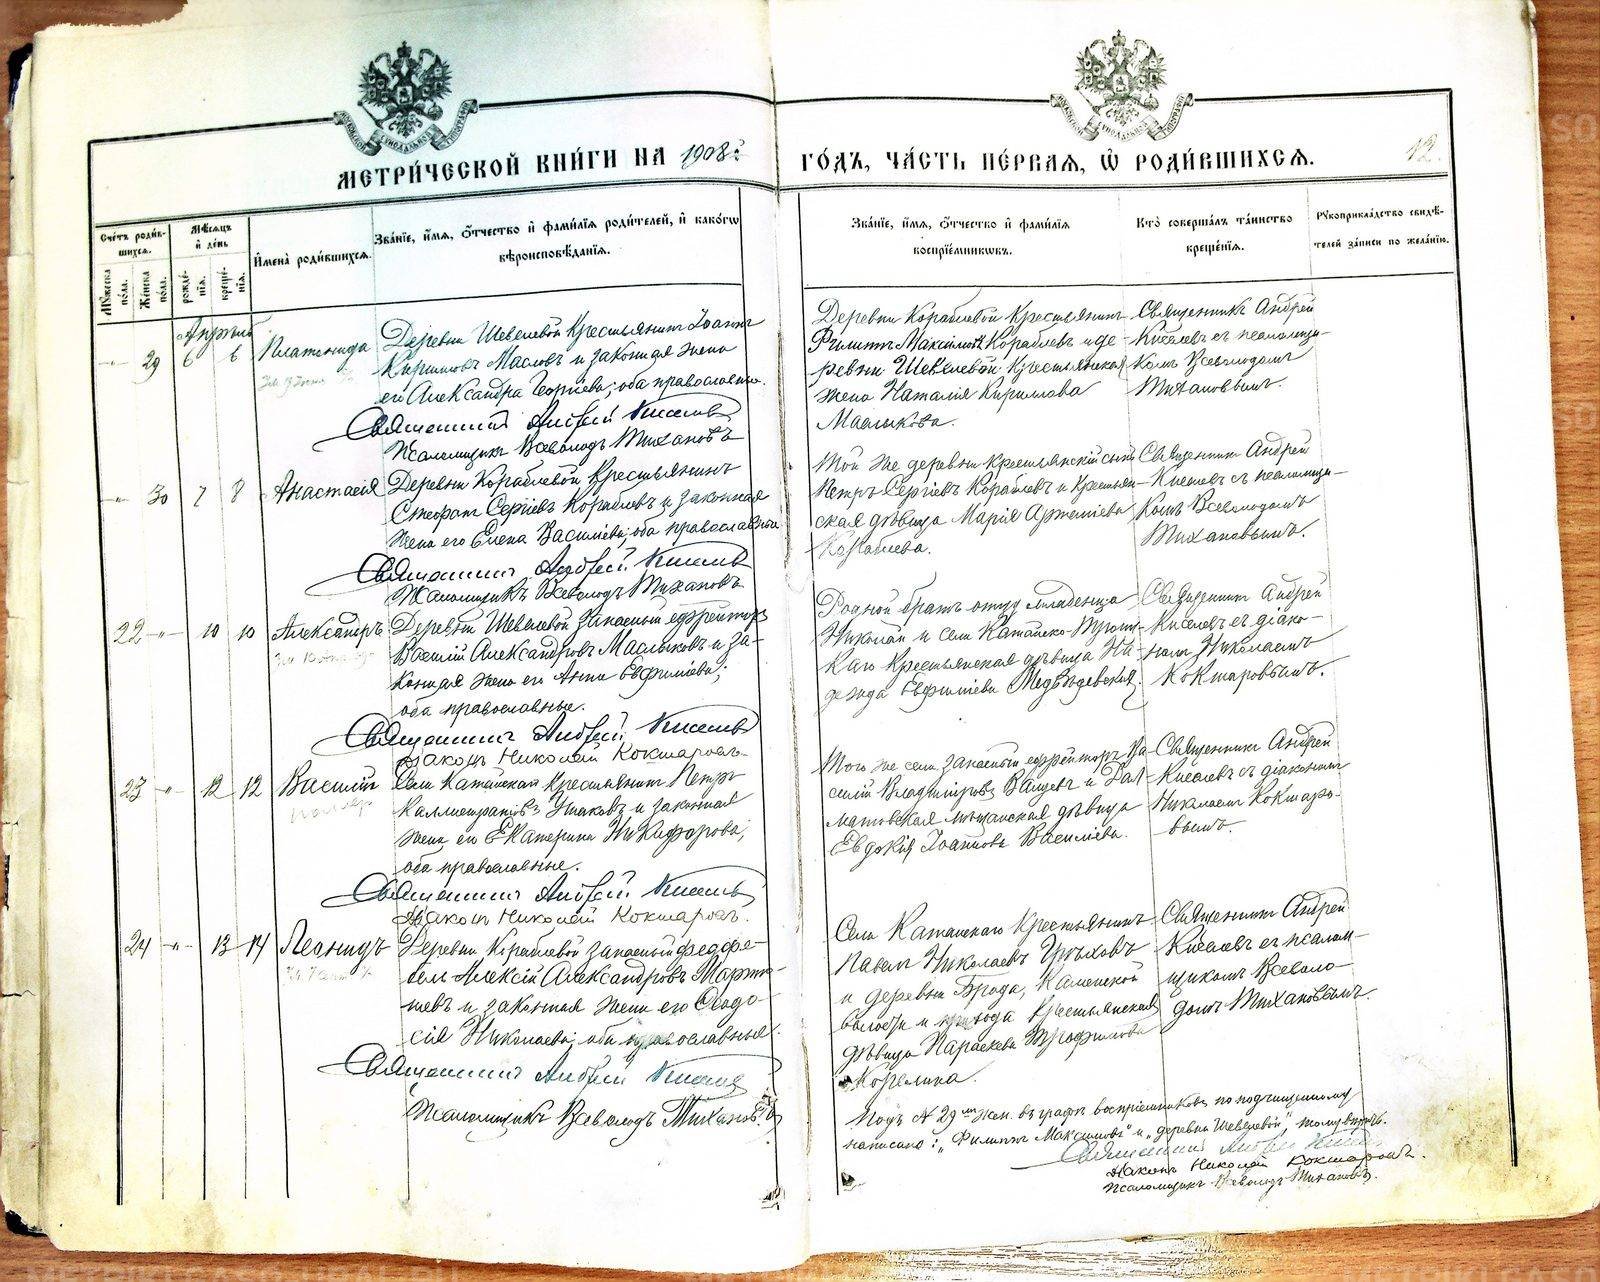 МЕТРИ́ЧЕСКОЙ КНИ́ГИ НА 1908й
ГО́ДЪ, ЧА́СТЬ ПЕ́РВАЯ, Ѡ҆ РОДИ́ВШИХСЯ.
Сче́тъ роди́вшихся.
Мѣ́сяцъ и҆ де́нь
И҆мена̀ роди́вшихся.
Зва́нїе, и҆́мя, о҆́тчество и҆ фами́лїя роди́телей, и҆ како́гѡ
вѣроисповѣ́данїя.
Му́жеска по́ла.
Же́нска по́ла.
рожде́нїя.
креще́нїя.
Зва́нїе, и҆́мя, о҆́тчество и҆ фами́лїя
воспрїе́мникѡвъ.
Кто̀ соверша́лъ та́инство
креще́нїя.
Рукоприкла́дство свидѣ́-
телей за́писи по жела́нїю.
Апрѣль
29 6 6 Платонида
Деревни Шевелевой Крестьянинъ Іоаннъ
Кириловъ Масловъ и законная жена
его Александра Георгіева; оба православные.
Священникъ Андрей Киселевъ
Псаломщикъ Всеволодъ Тихановъ
Деревни Кораблевой Крестьянинъ
Филиппъ Максимовъ Кораблевъ и де-
ревни Шевелевой Крестьянская
жена Наталія Кирилова
Маслыкова.
Священникъ Андрей
Киселевъ съ псаломщи-
комъ Всеволодомъ
Тихановымъ.
30 7 8 Анастасія
Деревни Кораблевой Крестьянинъ
Стефанъ Сергіевъ Кораблевъ и законная
жена его Елена Василіева; оба православные
Священникъ Андрей Киселевъ
Псаломщикъ Всеволодъ Тихановъ
Той же деревни Крестьянскій сынъ
Петръ Сергіевъ Кораблевъ и Крестьян-
ская дѣвица Марія Артеміева
Кораблева.
Священникъ Андрей
Киселевъ съ псаломщи-
комъ Всеволодомъ
Тихановымъ.
22 10 10 Александръ
Деревни Шевелевой запасный ефрейторъ
Василій Александровъ Маслыковъ и за-
конная жена его Анна Евфиміева;
оба православные.
Священникъ Андрей Киселевъ
Діаконъ Николай Кокшаровъ
Родной братъ отца младенца
Николай и села Катайско-
Крестьянская дѣвица На-
дежда Евфиміева Медвѣдевская.
Священникъ Андрей
Киселевъ съ діако-
номъ Николаемъ
Кокшаровымъ.
23 12 12 Василій
Села Катайскаго Крестьянинъ Петръ
Каллистратовъ Ушаковъ и законная
жена его Екатерина Никифорова;
оба православные.
Священникъ Андрей Киселевъ
Діаконъ Николай Кокшаровъ.
Того же села запасный ефрейторъ Ва-
силій Владиміровъ и Дал-
матовская мѣщанская дѣвица
Евдокія Іоаннова Василіева.
Священникъ Андрей
Киселевъ съ діакономъ
Николаемъ Кокшаро-
вымъ.
24 13 14 Леонидъ
Деревни Кораблевой запасный фельдфе-
бель Алексій Александровъ Марты-
шевъ и законная жена его Ѳеодо-
сія Николаева; оба православные.
Священникъ Андрей Киселевъ
Псаломщикъ Всеволодъ Тихановъ
Села Катайскаго Крестьянинъ
Павелъ Николаевъ
и деревни Брода, Каменской
волости и прихода Крестьянская
дѣвица Параскева Трофимова
Корелина.
Священникъ Андрей
Киселевъ съ псалом-
щикомъ Всеволо-
домъ Тихановымъ.
Подъ № 29мъ жен. въ графѣ воспріемниковъ по подчищенному
написано: „Филиппъ Максимовъ" и „деревни Шевелевой", тому вѣрить.
Священникъ Андрей Киселевъ
Діаконъ Николай Кокшаровъ.
Псаломщикъ Всеволодъ Тихановъ